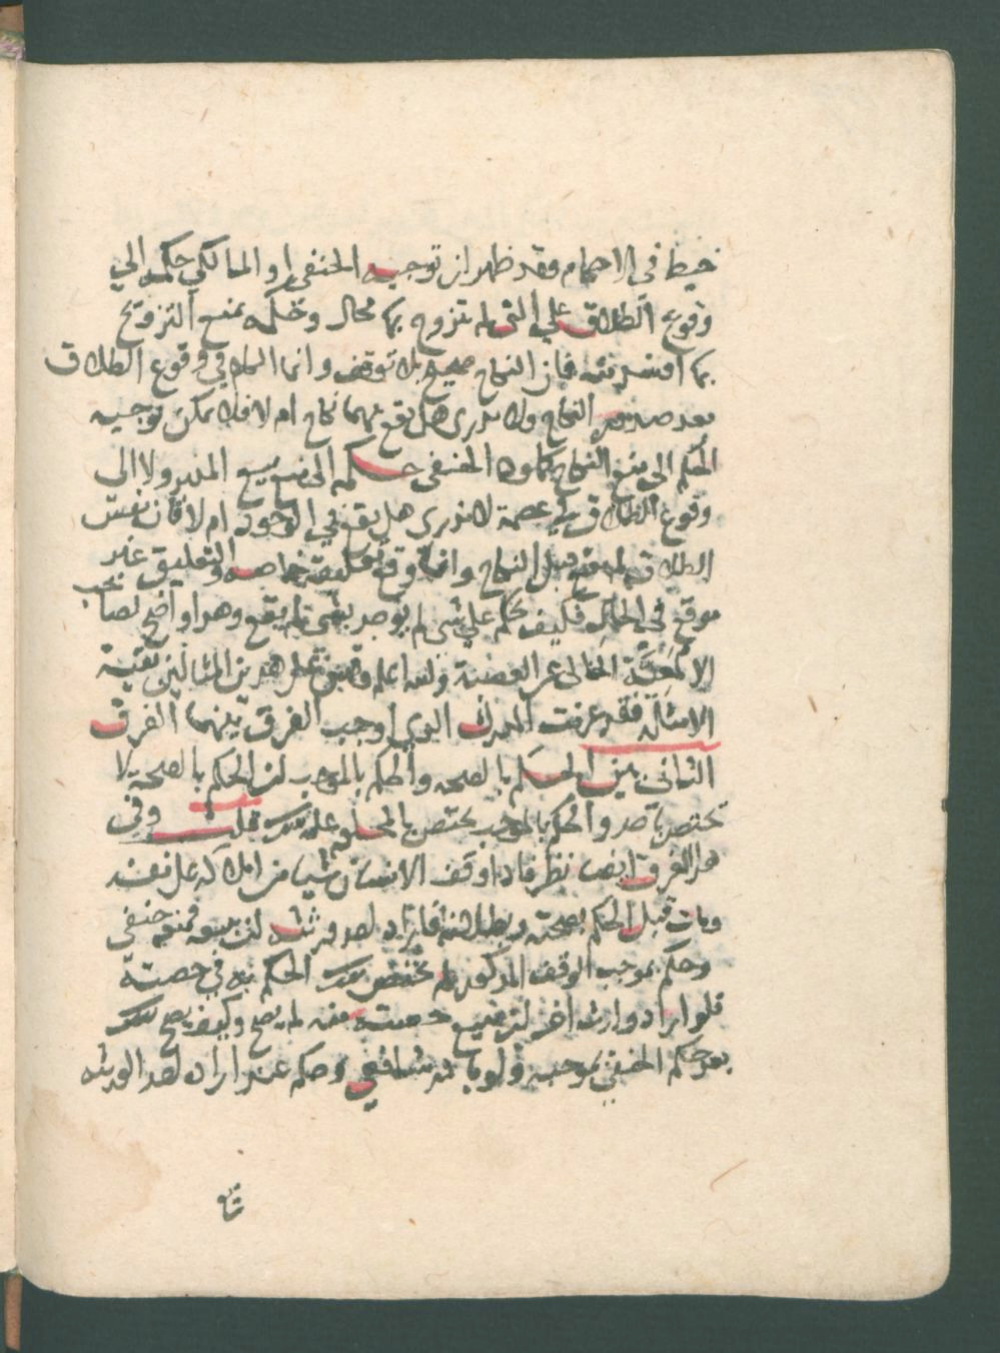 خبط في الاحكام فقد ظهر ان توجيه الحنفي او المالكي حكمه الي
وقوع الطلاق علي التي لم تزوج بها محال وحكمه بمنع التزويج
بها افسد منه فان النكاح صحيح بلا توقف وانما الكلام في وقوع الطلاق
بعد صدور النكاح ولا ندري هل يقع بينهما نكاح ام لا فلا يمكن توجيه
الحكم الى منع النكاح الحنفي حكمه الى منع بيع المدبر ولا الى
وقوع الطلاق في عصمة لا ندري هل يقع في الوجود ام لا فان نفس
الطلاق لم يقع قبل النكاح وانما وقع تعليقه خاصة والتعليق غير
موقع في الحال فكيف حكم علي شي لم يوجد بشي لم يقع وهذا واضح لصاحب
الالمعية الخالى عن العصبية والله اعلم وقس على هذين المثالين بقية
الامثلة فقد عرفت المدرك الذي اوجب الفرق بينهما الفرق
الثاني بين الحكم بالصحة والحكم بالموجب ان الحكم بالصحة لا
يختص باحد والحكم بالموجب يختص بالمحكوم عليه بذلك قلت وفي
هذا الفرق ايضا نظر فاذا وقف الانسان شيا من املاكه على نفسه
ومات قبل الحكم بصحته فاراد احد ورثته ان يبيعه فمنعه حنفي
وحكم بموجب الوقف المذكور لم يختص بذلك الحكم به في حصته
فلو اراد وارث اخر ان يبيع حصته منه لم يصح وكيف يصح ذلك
بعد حكم الحنفي بموجبه ولو شافعي وحكم عند ارادة احد الورثة